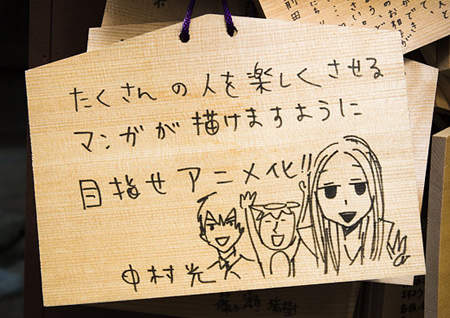 たくさんの人を楽しくさせる
マンガが描けますように
目指せアニメ化!!
中村光